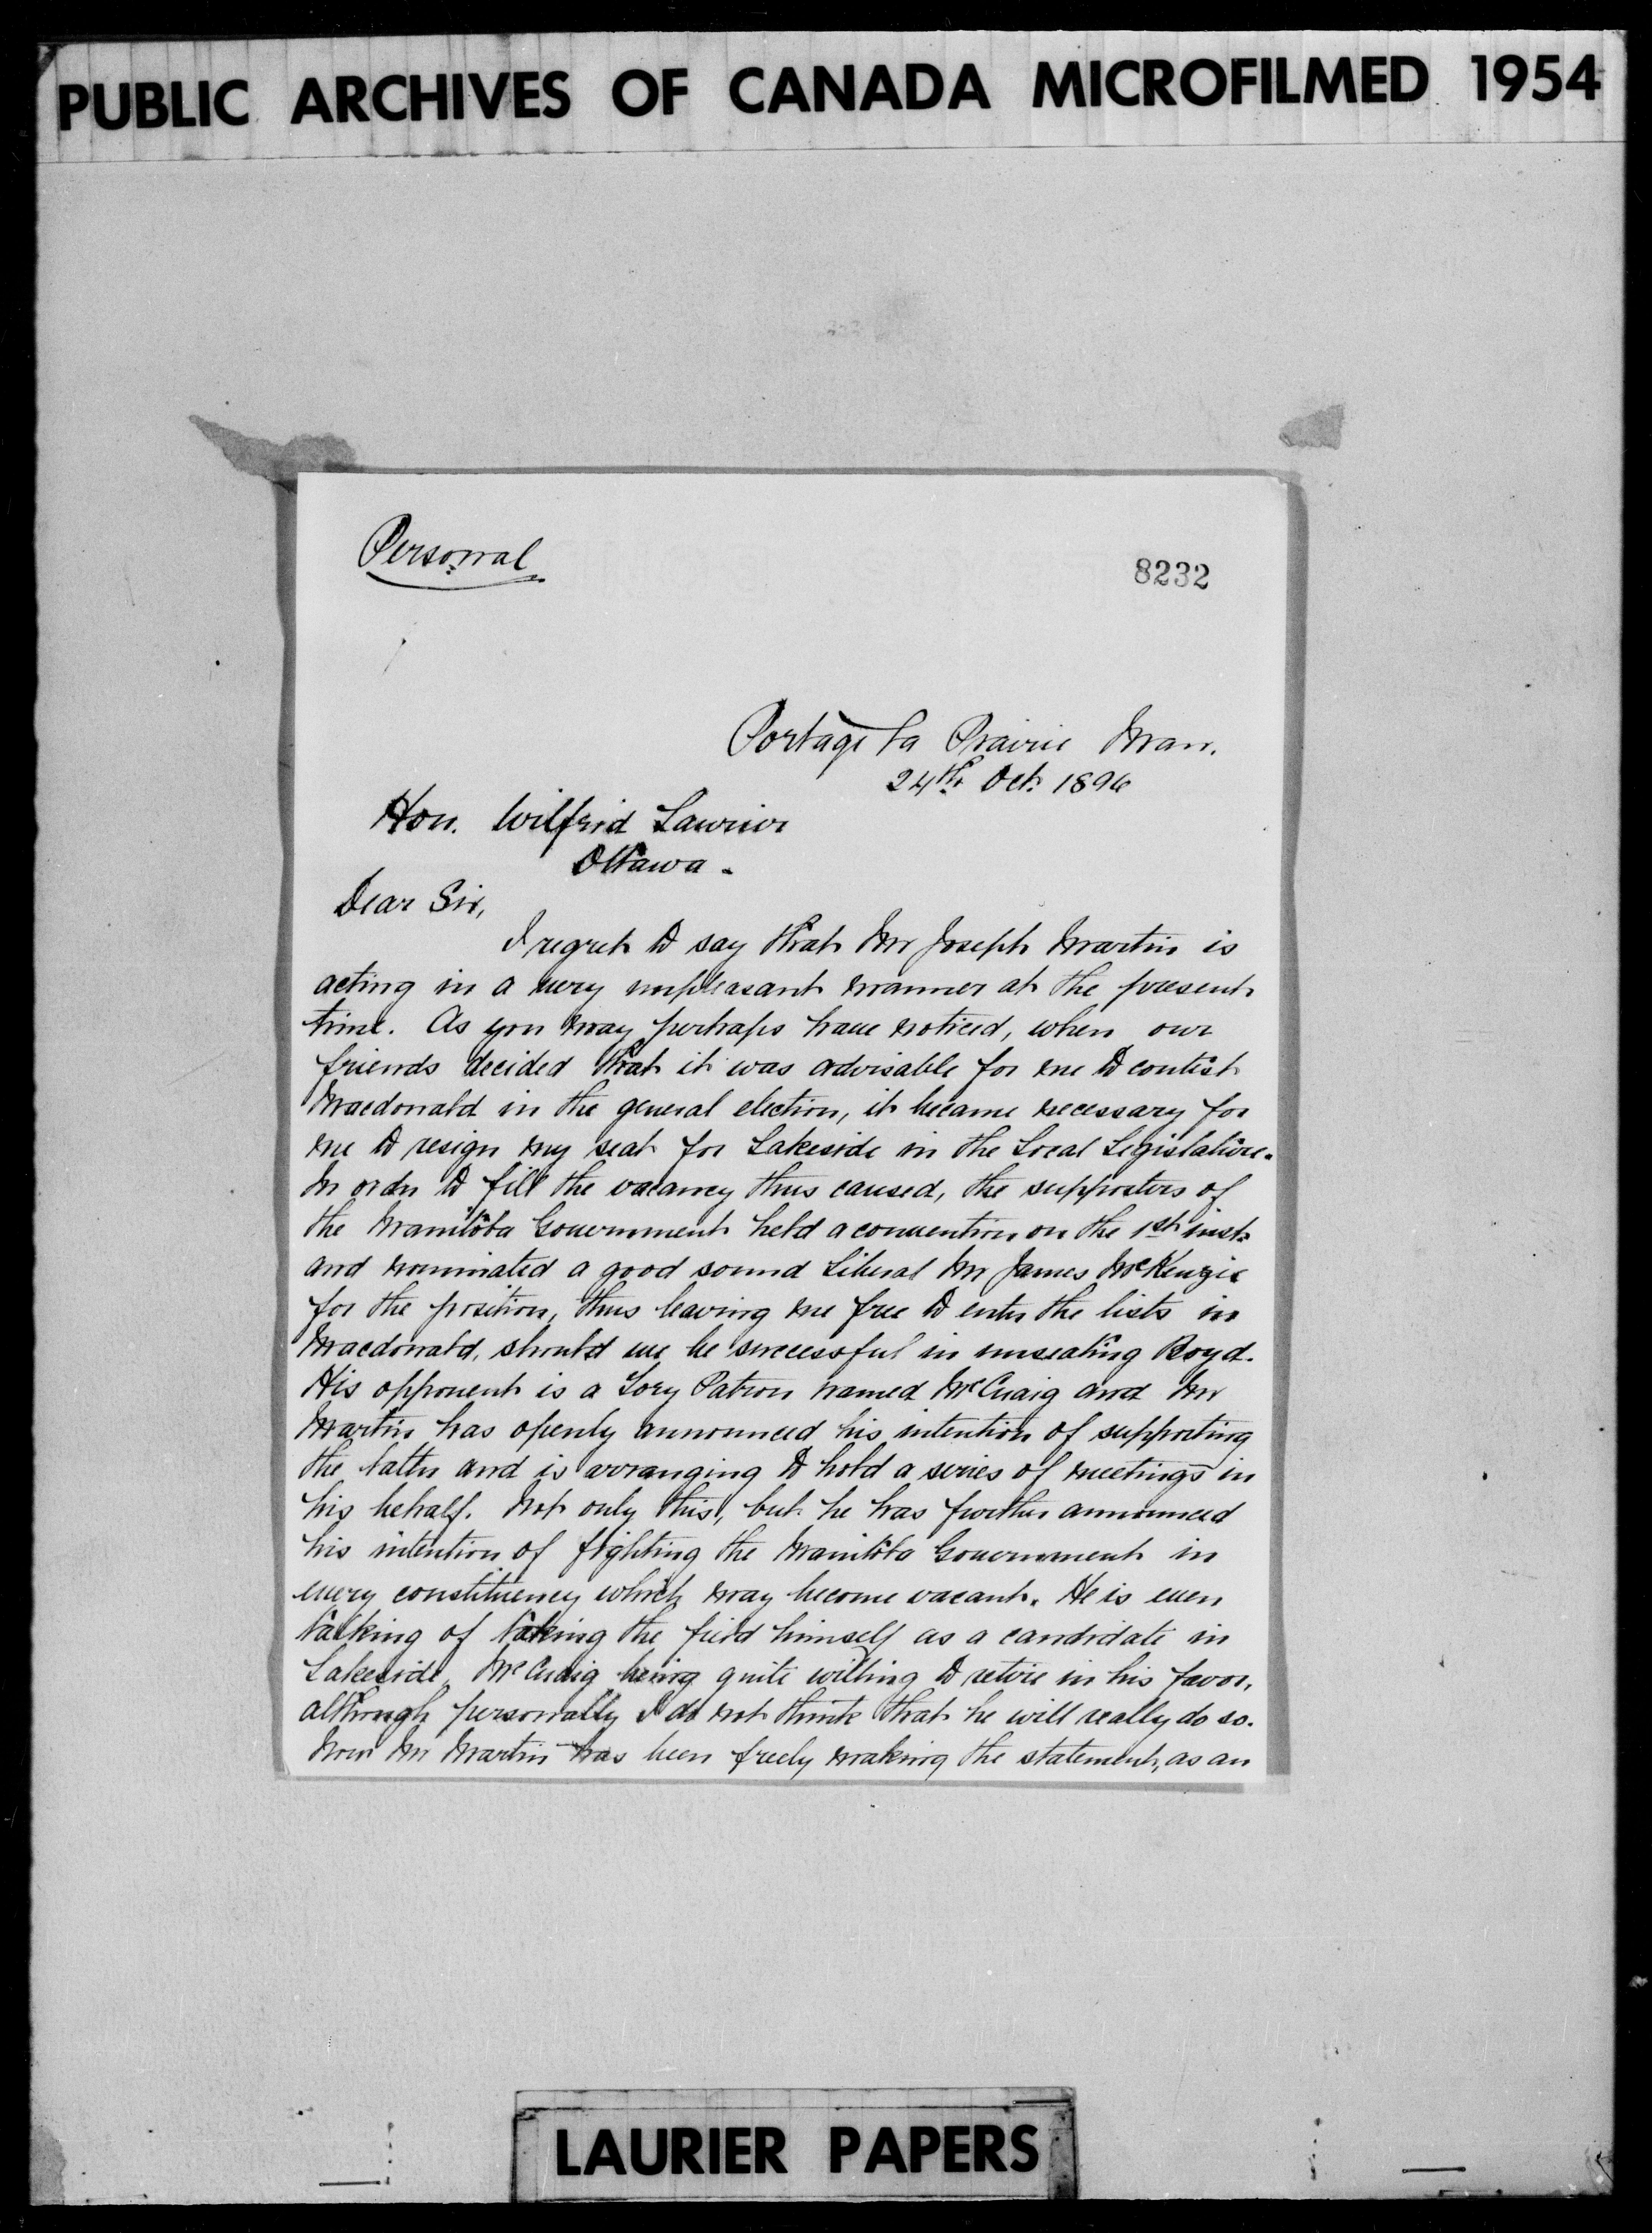 PUBLIC ARCHIVES OF CANADA MICROFILMED 1954
Personal
8232
Portage la Prairie Man.
24th Oct. 1896
Hon. Wilfrid Laurier
Ottawa.
Dear Sir,
I regret to say that Mr Joseph Martin is
acting in a very unpleasant manner at the present
time. As you may perhaps have noticed, when our
friends decided that it was advisable for me to contest
Macdonald in the general election, it became necessary for
me to resign my seat for Lakeside in the Local Legislature.
In order to fill the vacancy thus caused, the supporters of
the Manitoba Government held a convention on the 1st inst.
and nominated a good sound Liberal Mr James McKenzie
for the position, thus leaving me free to enter the lists in
Macdonald, should we be successful in unseating Boyd.
His opponent is a Tory Patron named McCuaig and Mr
Martin has openly announced his intention of supporting
the latter and is arranging to hold a series of meetings in
his behalf. Not only this, but he has further announced
his intention of fighting the Manitoba Government in
every constituency which may become vacant. He is even
talking of taking the field himself as a candidate in
Lakeside, McCuaig being quite willing to retire in his favor,
although personally I do not think that he will really do so.
Now Mr Martin has been freely making the statement, as an
LAURIER PAPERS